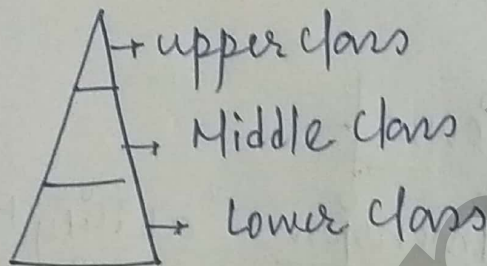 upper class
Middle Class
Lower Class